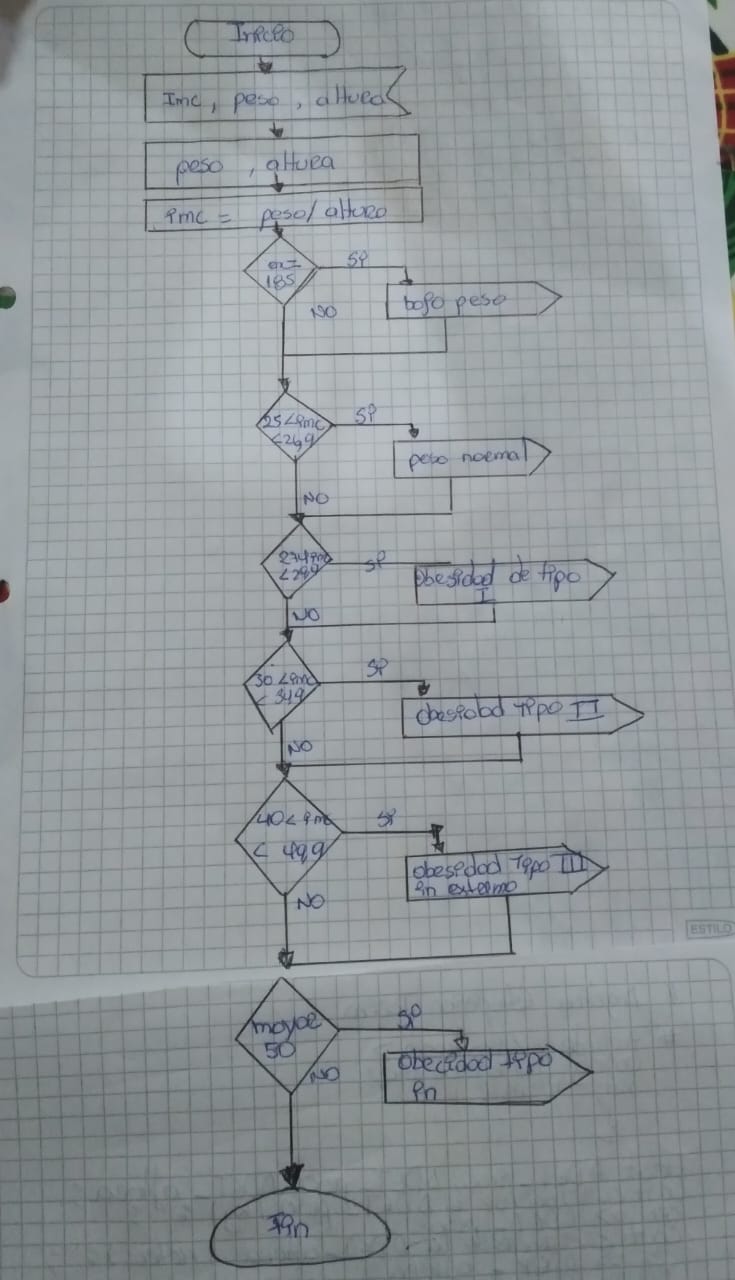 Inicio
Imc, peso, altura
peso, altura
imc = peso/altura
185
SI
NO
bajo peso
25<imc
<269
SI
NO
peso normal
27<imc
<299
SI
NO
obesidad de tipo
I
30<imc
<349
SI
NO
obesidad tipo II
40<imc
<499
SI
NO
obesidad tipo III
in extermo
ESTILO
mayoe
50
SI
NO
obecidad tipo
in
Fin